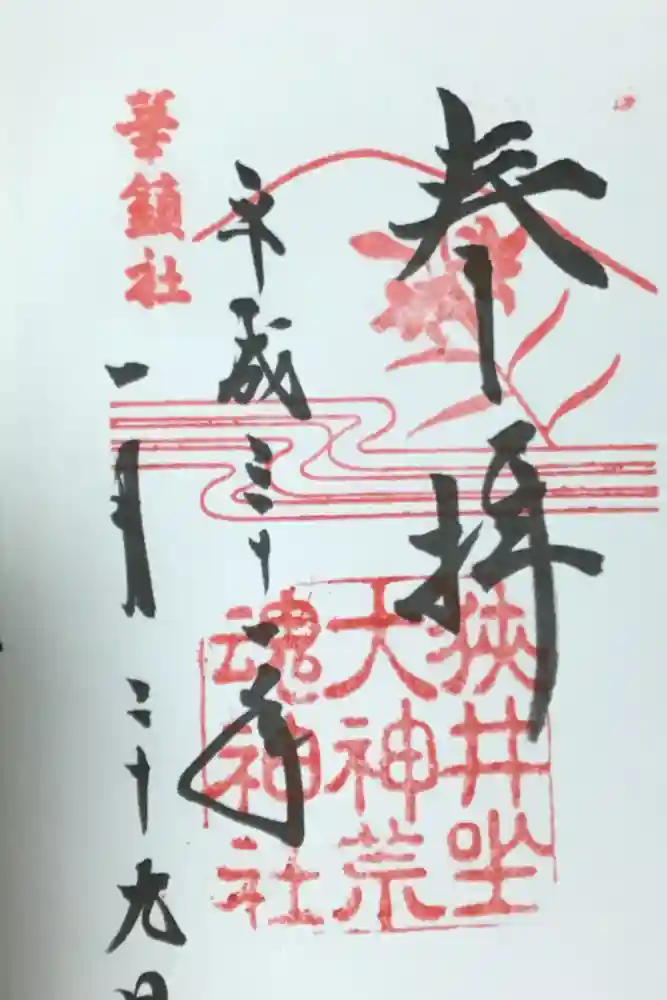 奉拝
狹井坐
大神荒
魂神社
平成三十一年
華鎭社
一月二十九日